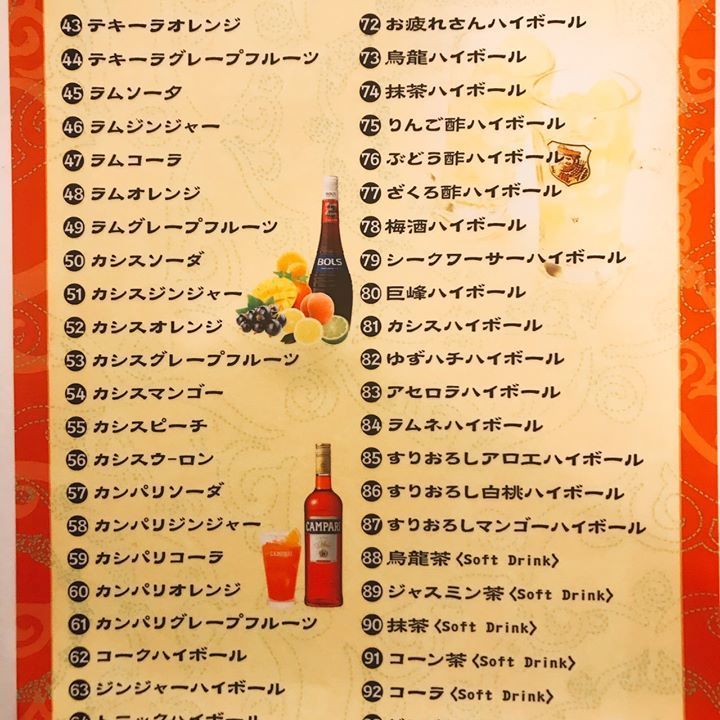 43 テキーラオレンジ
44 テキーラグレープフルーツ
45 ラムソーダ
46 ラムジンジャー
47 ラムコーラ
48 ラムオレンジ
49 ラムグレープフルーツ
50 カシスソーダ
51 カシスジンジャー
52 カシスオレンジ
53 カシスグレープフルーツ
54 カシスマンゴー
55 カシスピーチ
56 カシスウーロン
57 カンパリソーダ
58 カンパリジンジャー
59 カシパリコーラ
60 カンパリオレンジ
61 カンパリグレープフルーツ
62 コークハイボール
63 ジンジャーハイボール
64 トニックハイボール
BOLS
CAMPARI
CAMPARI
72 お疲れさんハイボール
73 烏龍ハイボール
74 抹茶ハイボール
75 りんご酢ハイボール
76 ぶどう酢ハイボール
77 ざくろ酢ハイボール
78 梅酒ハイボール
79 シークワーサーハイボール
80 巨峰ハイボール
81 カシスハイボール
82 ゆずハチハイボール
83 アセロラハイボール
84 ラムネハイボール
85 すりおろしアロエハイボール
86 すりおろし白桃ハイボール
87 すりおろしマンゴーハイボール
88 烏龍茶〈Soft Drink〉
89 ジャスミン茶〈Soft Drink〉
90 抹茶〈Soft Drink〉
91 コーン茶〈Soft Drink〉
92 コーラ〈Soft Drink〉